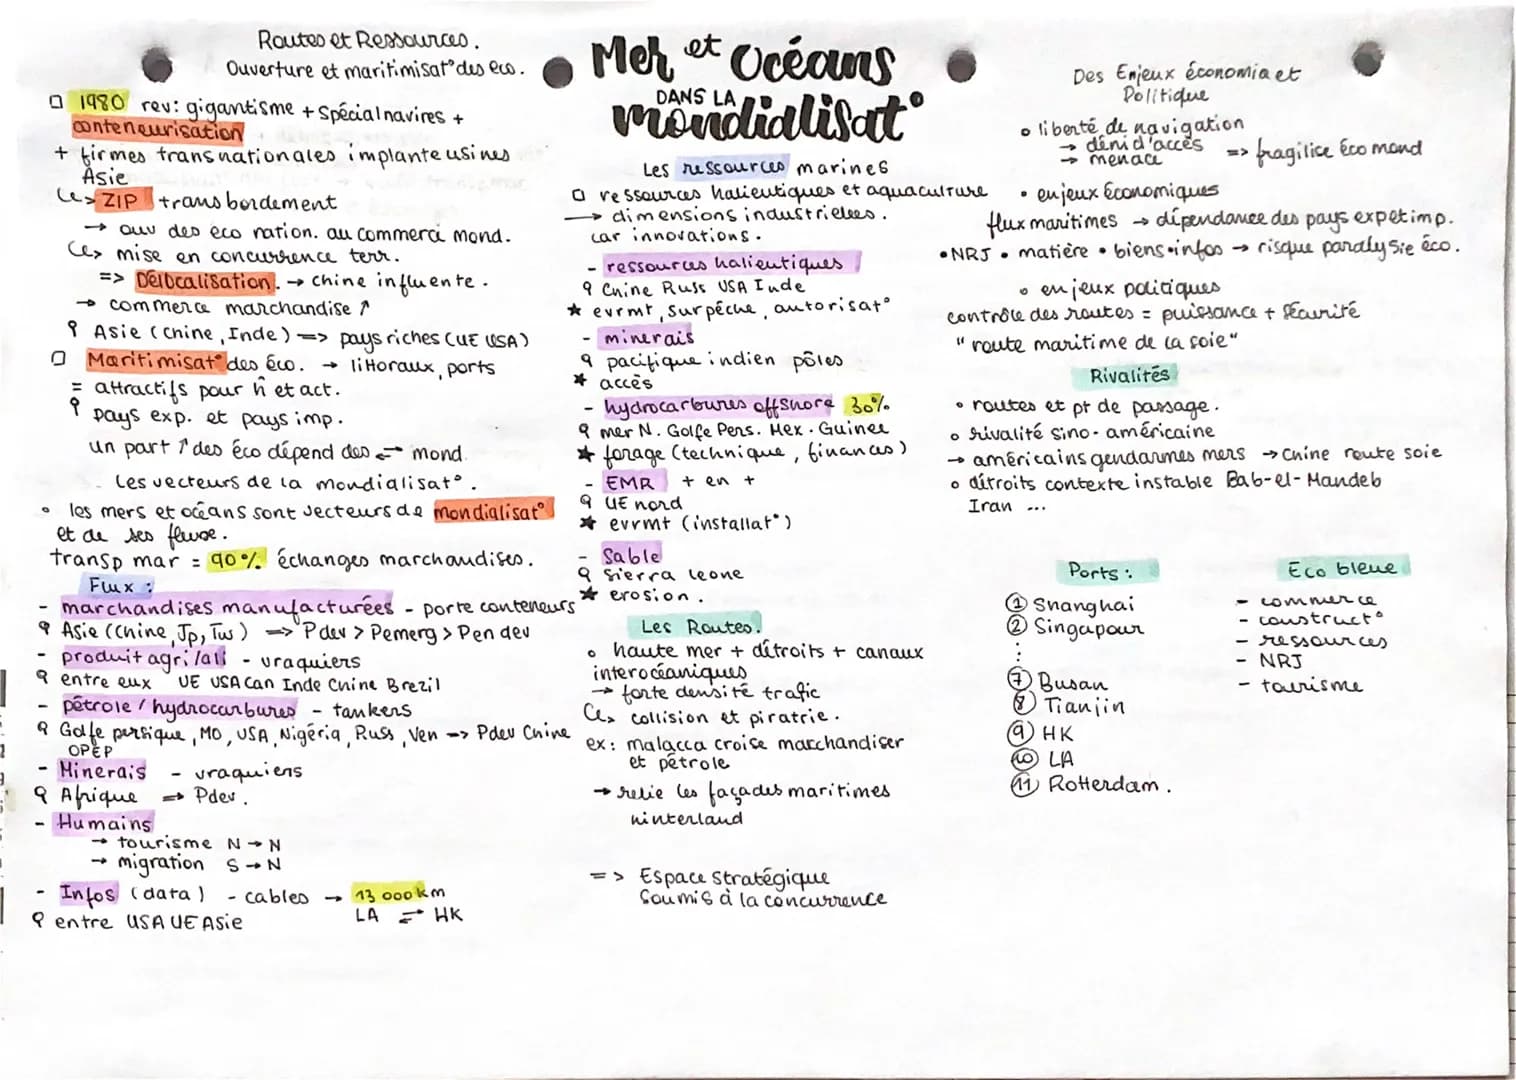 Routes et Ressources.
Ouverture et maritimisat° des eco.
1980 rev: gigantisme + spécial navires +
conteneurisation
+ firmes transnationales implante usines
Asie
↳ ZIP transbordement
→ ouv des éco nation. au commerce mond.
↳ mise en concurrence terr.
=> Délocalisation. → chine influente.
→ commerce marchandise ↗
Asie (Chine, Inde) => pays riches (UE USA)
Maritimisat° des éco. → littoraux, ports
= attractifs pour h et act.
pays exp. et pays imp.
un part ↗ des éco dépend des ⇄ mond.
Les vecteurs de la mondialisat°.
• les mers et océans sont vecteurs de mondialisat°
et de ses fluxe.
transp mar = 90% échanges marchandises.
Flux :
- marchandises manufacturées - porte conteneurs
Asie (Chine, Jp, Tw) => P dev > P emerg > P en dev
- produit agri/ali - vraquiers
entre eux UE USA Can Inde Chine Brezil
- pétrole / hydrocarbures - tankers
Golfe persique, MO, USA, Nigéria, Russ, Ven => Pdev Chine
OPEP
- Minerais - vraquiers
Afrique => Pdev.
- Humains
→ tourisme N → N
→ migration S → N
- Infos (data) - cables → 13 000 km
LA ⇄ HK
entre USA UE ASie
Mer et Océans
DANS LA
mondialisat°
Les ressources marines
ressources halieutiques et aquaculture
→ dimensions industrielles.
car innovations.
- ressources halieutiques
Chine Russ USA Inde
★ evrmt, surpêche, autorisat°
- minerais
pacifique indien pôles
★ accès
- hydrocarbures offshore 30%
mer N. Golfe Pers. Mex. Guinee
★ forage (technique, finances)
- EMR + en +
UE nord
★ evrmt (installat°)
- Sable
sierra leone
★ erosion.
Les Routes.
• haute mer + détroits + canaux
interocéaniques
→ forte densité trafic
↳ collision et piratrie.
ex: malacca croise marchandiser
et pétrole
→ relie les façades maritimes
hinterland
=> Espace stratégique
soumis à la concurrence
Des Enjeux économia et
Politique
• liberté de navigation
→ déni d'accès
→ menace
=> fragilice éco mond
• enjeux économiques
flux maritimes → dépendance des pays exp et imp.
• NRJ • matière • biens • infos → risque paralysie éco.
• enjeux politiques
contrôle des routes = puissance + sécurité
"route maritime de la soie"
Rivalités
• routes et pt de passage.
• rivalité sino-américaine
→ américains gendarmes mers → Chine route soie
• détroits contexte instable Bab-el-Mandeb
Iran ...
Ports :
① Shanghai
② Singapour
⋮
⑦ Busan
⑧ Tianjin
⑨ HK
⑩ LA
⑪ Rotterdam.
Eco bleue
- commerce
- construct°
- ressources
- NRJ
- tourisme